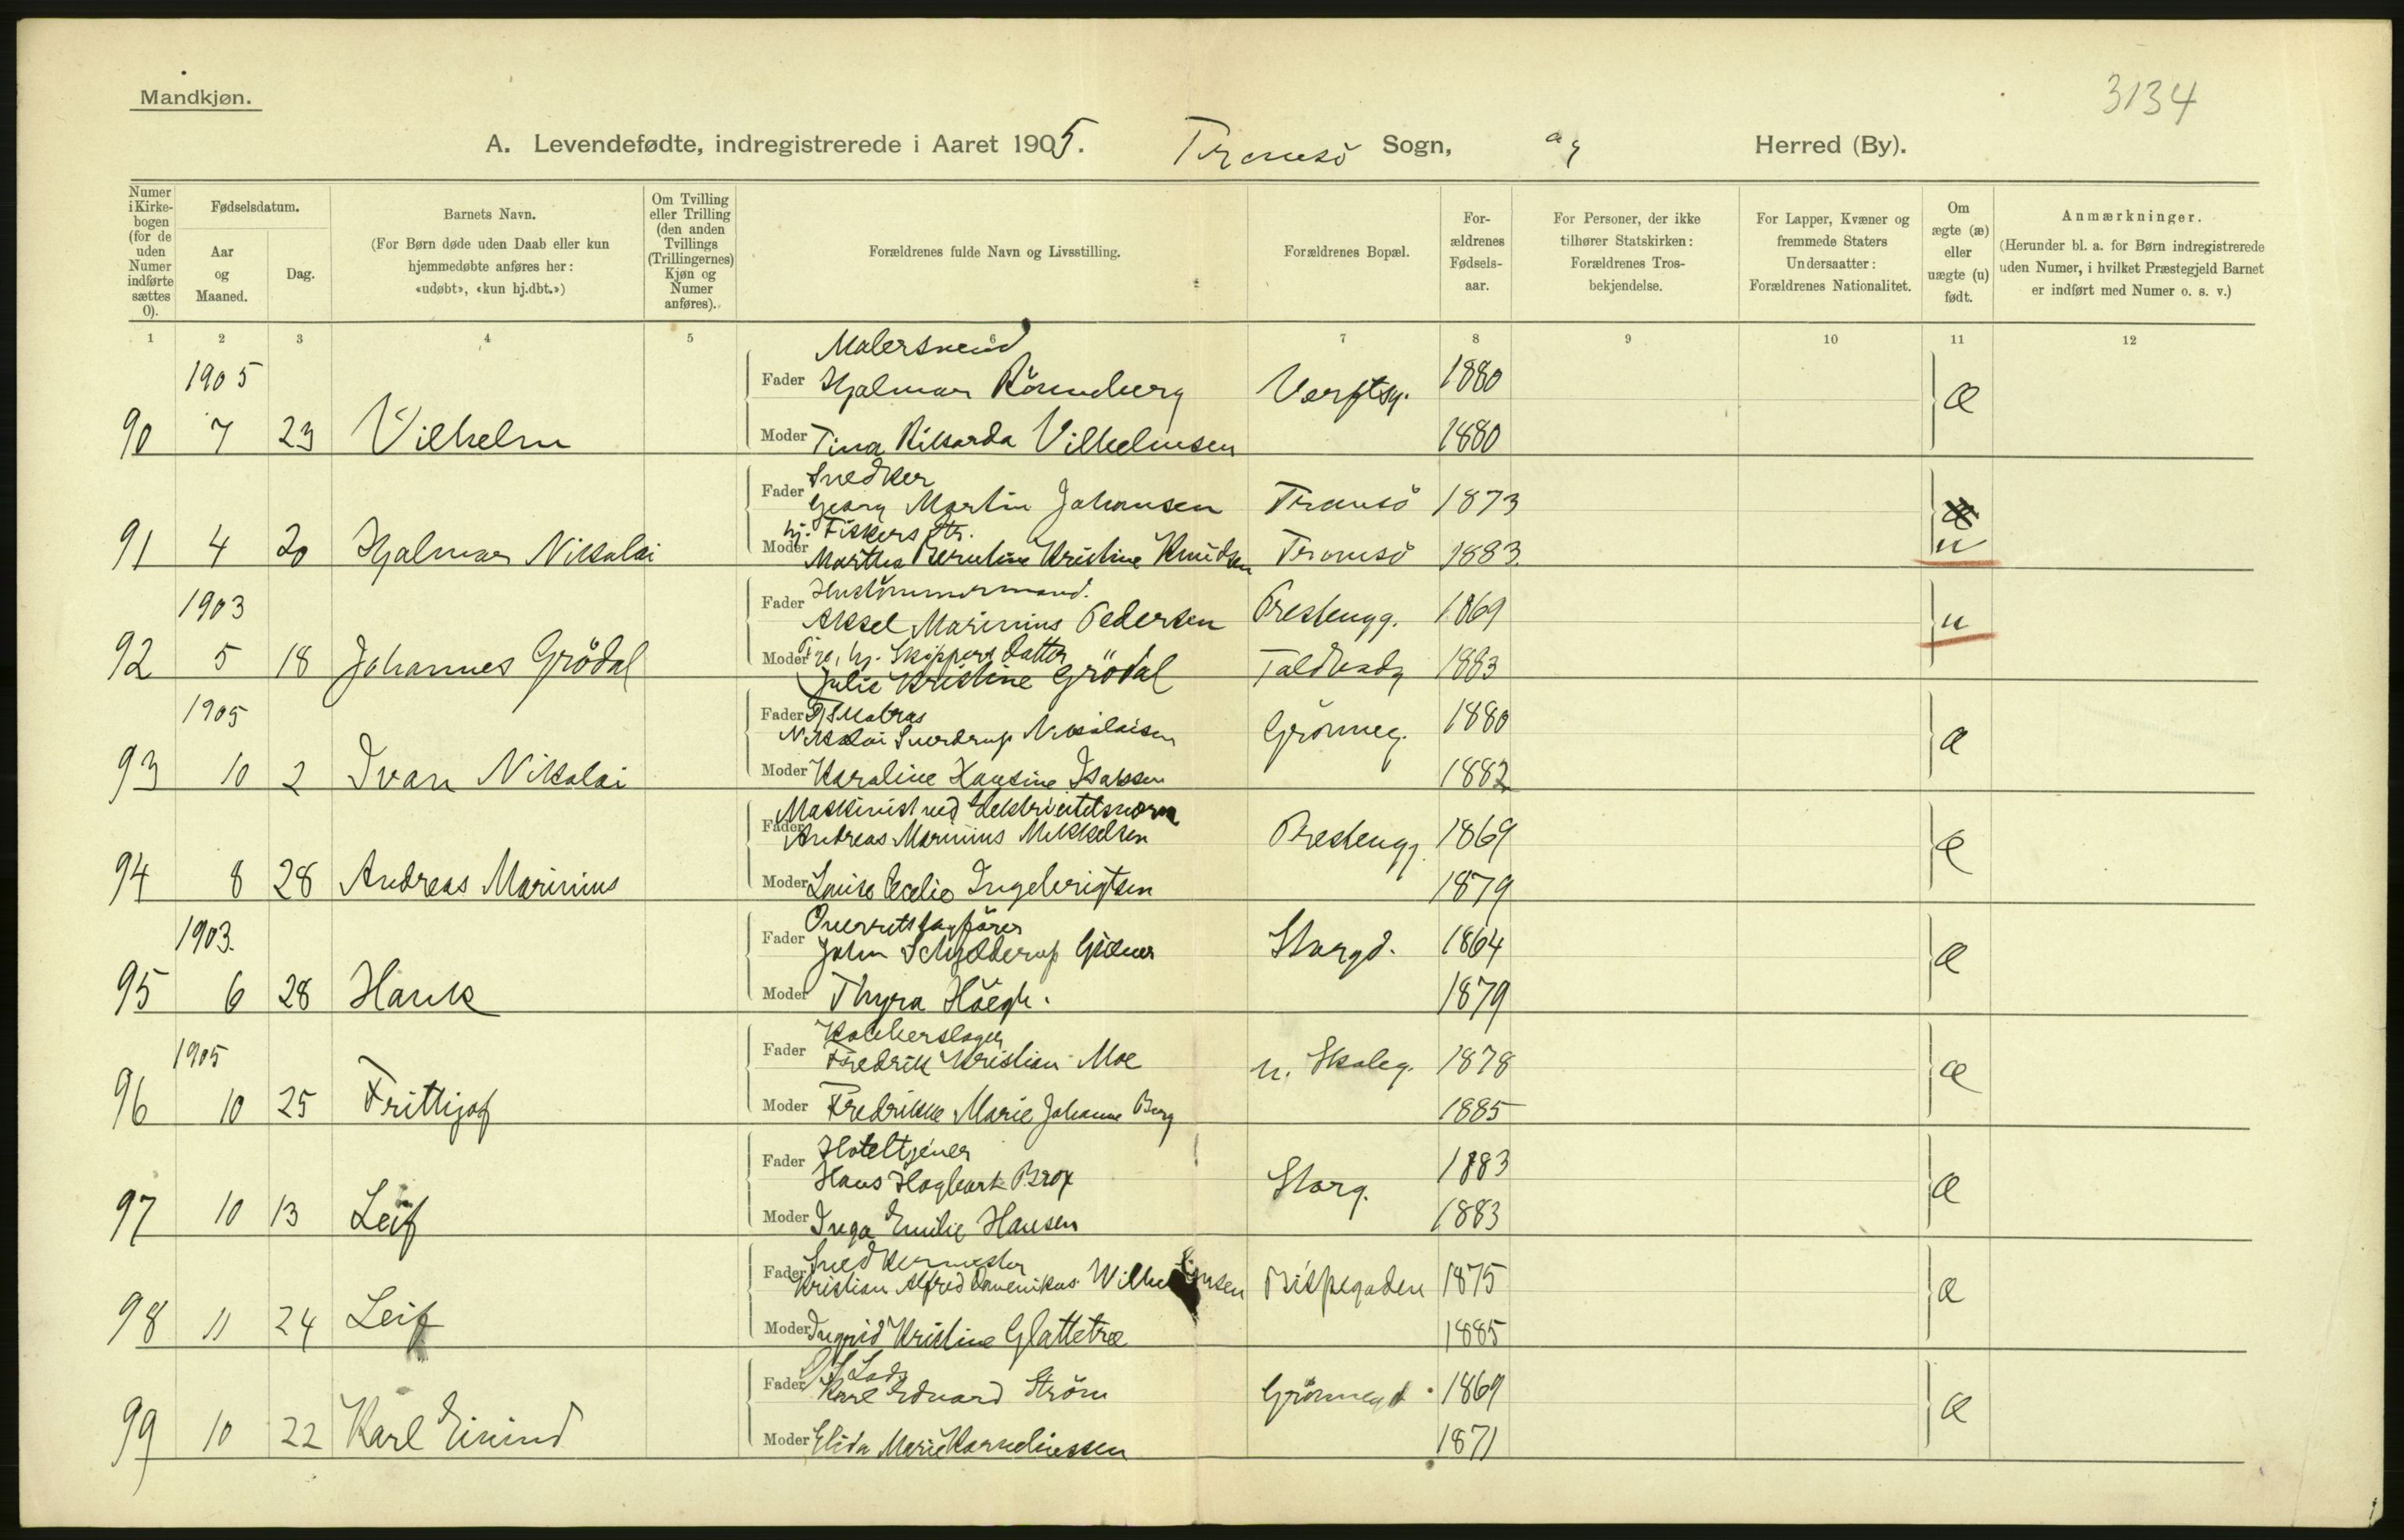 Mandkjøn.
3134
A. Levendefødte, indregistrerede i Aaret 1905. Tromsö Sogn, Herred (By).
Numer i Kirkebogen (for de uden Numer indførte sættes 0).
Fødselsdatum.
Aar og Maaned.
Dag.
Barnets Navn.
(For Børn døde uden Daab eller kun hjemmedøbte anføres her: «udøbt», «kun hj.dbt.»)
Om Tvilling eller Trilling (den anden Tvillings (Trillingernes) Kjøn og Numer anføres).
Forældrenes fulde Navn og Livsstilling.
Forældrenes Bopæl.
Forældrenes Fødselsaar.
For Personer, der ikke tilhører Statskirken: Forældrenes Trosbekjendelse.
For Lapper, Kvæner og fremmede Staters Undersaatter: Forældrenes Nationalitet.
Om ægte (æ) eller uægte (u) født.
Anmærkninger.
(Herunder bl. a. for Børn indregistrerede uden Numer, i hvilket Præstegjeld Barnet er indført med Numer o. s. v.)
1 2 3 4 5 6 7 8 9 10 11 12
Malersvend
1905 Fader Hjalmar Rönneberg Verftsg. 1880 æ
90 7 23 Vilhelm Moder Tina Rikarda Vilhelmsen 1880
Snedker
Fader Georg Martin Johansen Tromsö 1873 æ
hj. Fiskers dtr.
91 4 20 Hjalmar Nikolai Moder Martha Kristine Knudsen Tromsö 1883. u
Hustömmermand.
1903 Fader Aksel Marinius Pedersen Prestengg. 1869 u
hj. Skippers datter
92 5 18 Johannes Grödal Moder Julie Kristine Grödal 1883
1905 Fader Nikolai Sverdrup Nikolaisen Grönneg. 1880 æ
93 10 2 Ivan Nikolai Moder Karoline Hansine Isaksen 1882
Maskinist ved Elektricitetsverk
Fader Andreas Marinius Mikkelsen Prestengg. 1869 æ
94 8 28 Andreas Marinius Moder Louise Cecelie Ingebrigtsen 1879
Overretssagförer
1903. Fader John Schjelderup Storgd. 1864 æ
95 6 28 Hauk Moder Thyra Höegh. 1879
Kobberslager
1905 Fader Fredrik Kristian Moe n. Skoleg. 1878 æ
96 10 25 Frittjof Moder Fredrikke Marie Johanne Berg 1885
Hoteltjener
Fader Hans Hagbart Brox Storg. 1883 æ
97 10 13 Leif Moder Inga Emilie Hansen 1883
Snedkermester
Fader Kristian Alfred Domenikus Wilhelmsen Bispegaden 1875 æ
98 11 24 Leif Moder Ingrid Kristine Glattetre 1885
Fader Karl Edvard Ström Grönnegd. 1869 æ
99 10 22 Karl Eivind Moder Elida Marie Korneliussen 1871